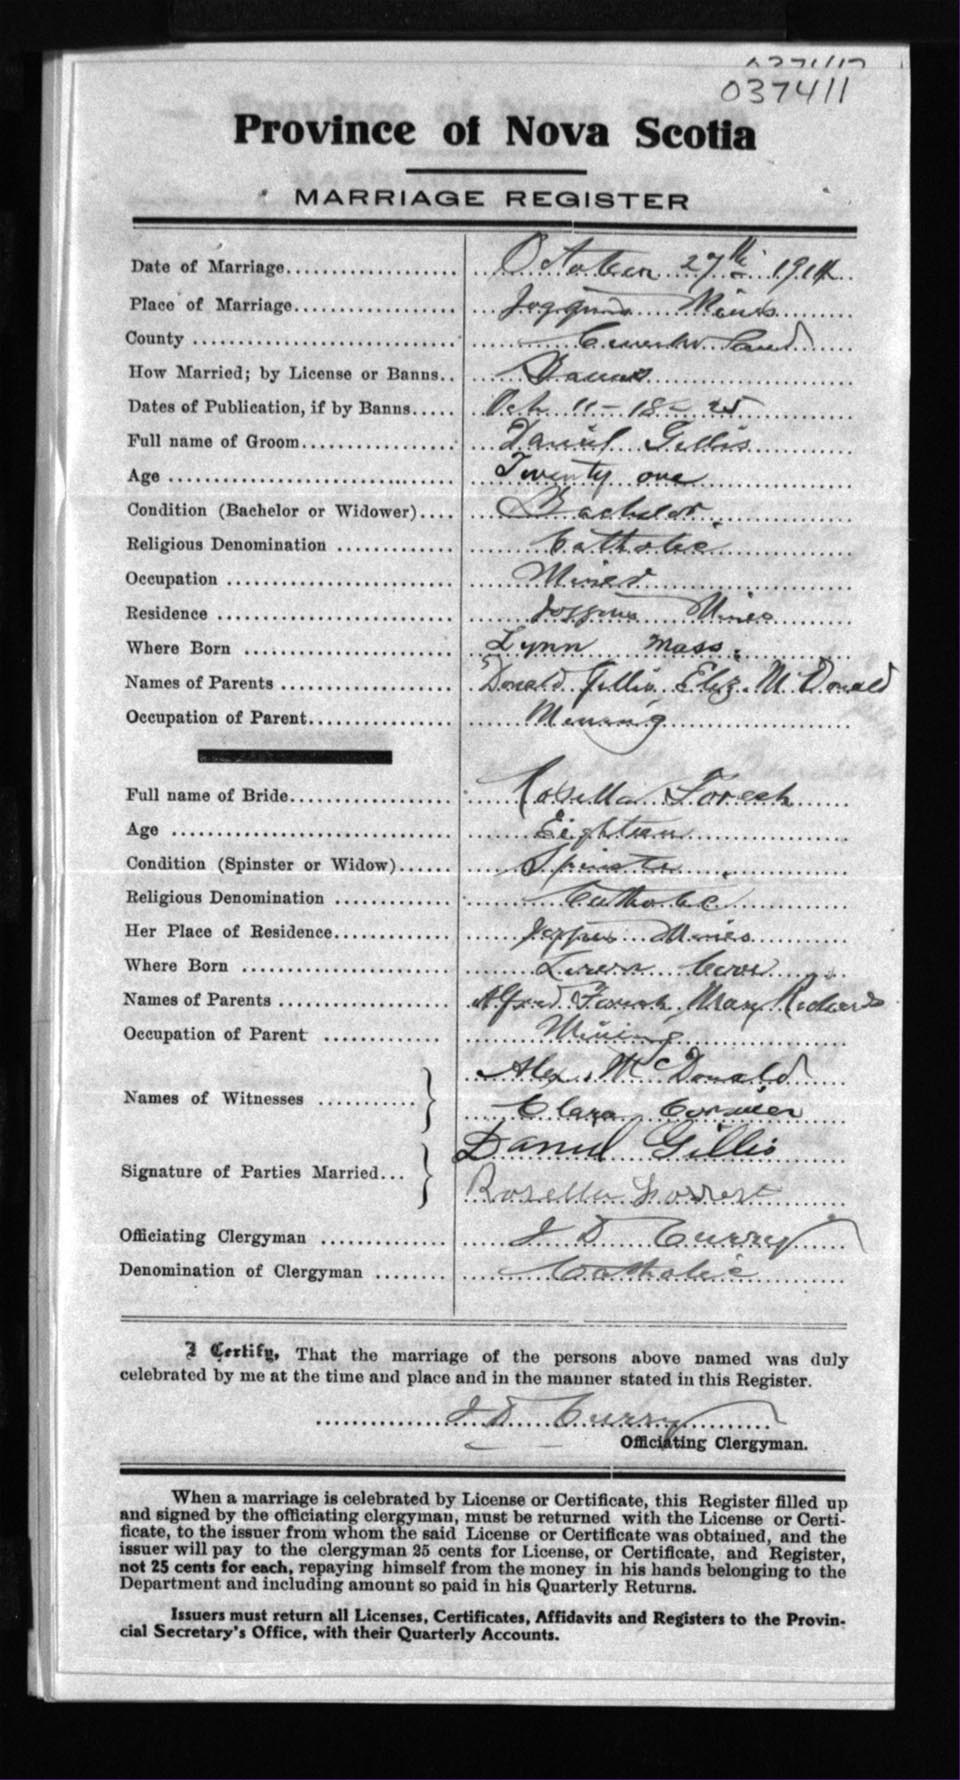 037411
Province of Nova Scotia
MARRIAGE REGISTER
Date of Marriage October 27th 1914
Place of Marriage Joggins Mines
County Cumberland
How Married; by License or Banns Banns
Dates of Publication, if by Banns Oct 11 - 18 - 25
Full name of Groom Daniel Gillis
Age Twenty one
Condition (Bachelor or Widower) Bachelor
Religious Denomination Catholic
Occupation Miner
Residence Joggins Mines
Where Born Lynn Mass.
Names of Parents Donald Gillis Eliz. McDonald
Occupation of Parent Mining
Full name of Bride Rosella Forech
Age Eighteen
Condition (Spinster or Widow) Spinster
Religious Denomination Catholic
Her Place of Residence Joggins Mines
Where Born Cove
Names of Parents Alfred Mary Richards
Occupation of Parent Mining
Names of Witnesses Alex. McDonald
Clara Cormier
Signature of Parties Married Daniel Gillis
Rosella Forrest
Officiating Clergyman J D Curry
Denomination of Clergyman Catholic
I Certify, That the marriage of the persons above named was duly
celebrated by me at the time and place and in the manner stated in this Register.
J D Curry
Officiating Clergyman.
When a marriage is celebrated by License or Certificate, this Register filled up
and signed by the officiating clergyman, must be returned with the License or Certi-
ficate, to the issuer from whom the said License or Certificate was obtained, and the
issuer will pay to the clergyman 25 cents for License, or Certificate, and Register,
not 25 cents for each, repaying himself from the money in his hands belonging to the
Department and including amount so paid in his Quarterly Returns.
Issuers must return all Licenses, Certificates, Affidavits and Registers to the Provin-
cial Secretary's Office, with their Quarterly Accounts.